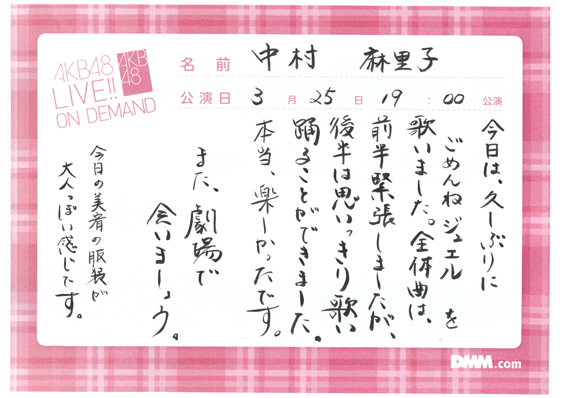 AKB48
LIVE!!
ON DEMAND
AKB
48
名前 中村 麻里子
公演日 3月25日 19:00 公演
今日は、久しぶりに
ごめんねジュエル を
歌いました。全体曲は、
前半緊張しましたが、
後半は思いっきり歌い
踊ることができました。
本当、楽しかったです。
また、劇場で
会いましょう。
今日の美者の服装が
大人っぽい感じです。
DMM.com